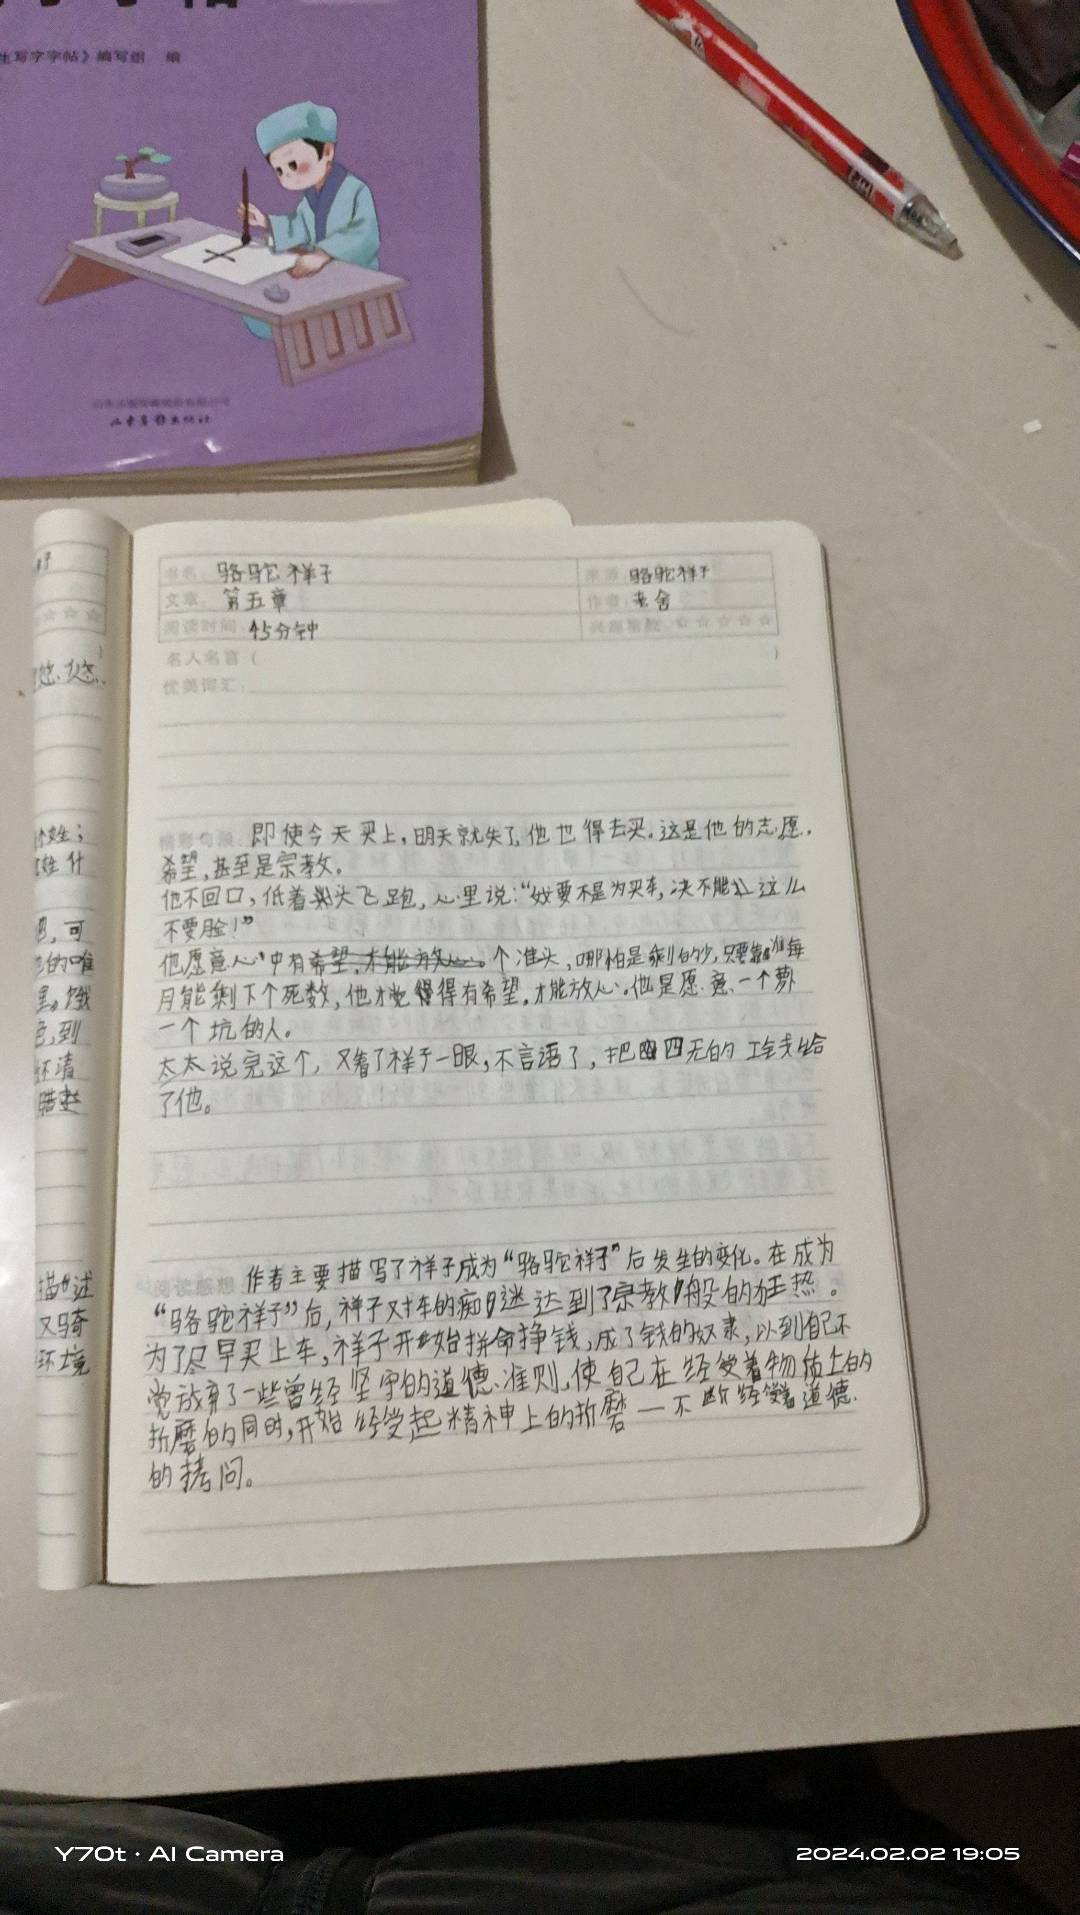 生写字字帖》编写组 编
书名： 骆驼祥子 来源：骆驼祥子
文章： 第五章 作者：老舍
阅读时间 45分钟 兴趣指数 ☆☆☆☆☆
名人名言（ ）
优美词汇：
精彩句段： 即使今天买上，明天就失了他也得去买。这是他的志愿，
希望，甚至是宗教。
他不回口，低着头飞跑，心里说：“要不是为买车，决不能这么
不要脸！”
他愿意心中有个准头，哪怕是剩的少，只要靠准每
月能剩下个死数，他才觉得有希望，才能放心。他是愿意一个萝
一个坑的人。
太太说完这个，又看了祥子一眼，不言语了，把四天的工钱给
了他。
阅读感想 作者主要描写了祥子成为“骆驼祥子”后发生的变化。在成为
“骆驼祥子”后，祥子对车的痴迷达到了宗教般的狂热。
为了尽早买上车，祥子开始拼命挣钱，成了钱的奴隶，以到自己不
觉放弃了一些曾经坚守的道德、准则，使自己在经受着物质上的
折磨的同时，开始经受起精神上的折磨—不断经受着道德
的拷问。
描述
又骑
环境
Y70t · AI Camera
2024.02.02 19:05